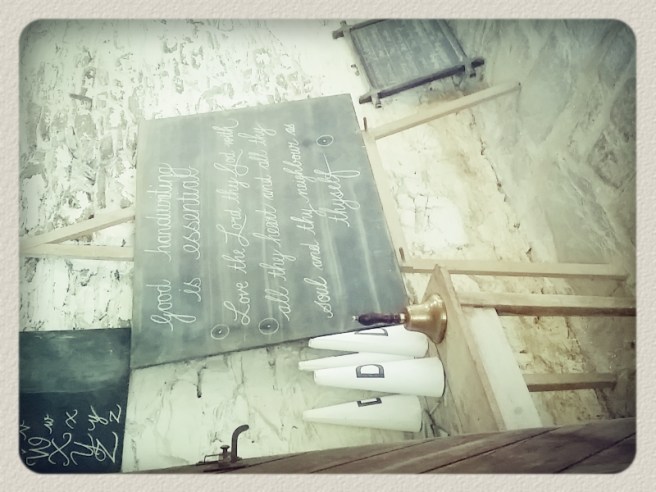 good handwriting
is essential
Love the Lord thy God with
all thy heart and all thy
soul and thy neighbour as
thyself
D
D
D
W w
X x
Y y
Z z